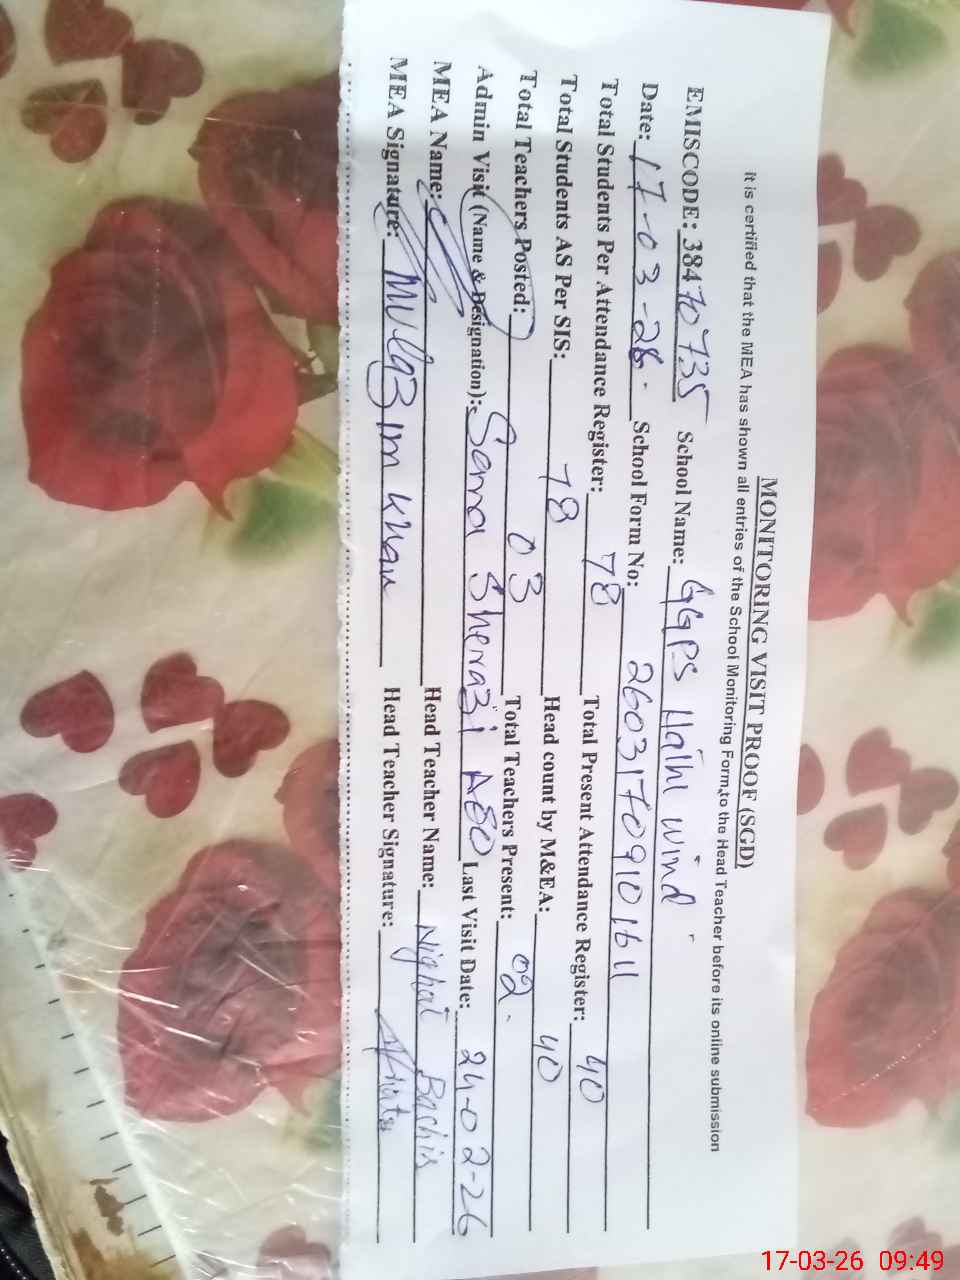 MONITORING VISIT PROOF (SGD)
it is certified that the MEA has shown all entries of the School Monitoring Form,to the Head Teacher before its online submission
EMISCODE: 38470735 School Name: GGPS Wind
Date: 17-03-26. School Form No: 26031709101611
Total Students Per Attendance Register: 78 Total Present Attendance Register: 40
Total Students AS Per SIS: 78 Head count by M&EA: 40
Total Teachers Posted: 03 Total Teachers Present: 02.
Admin Visit (Name & Designation): Sama Sherazi AEO Last Visit Date: 24-02-26
MEA Name: Head Teacher Name: Nighat
MEA Signature: Mullazim Khan Head Teacher Signature:
17-03-26 09:49